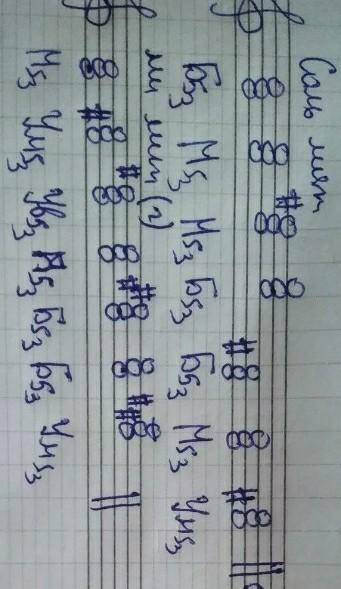 Соль
Б53 М53 М53 Б53 Б53 М53 Ум53
ми мин (г)
М53 Ум53 Ув53 М53 Б53 Б53 Ум53